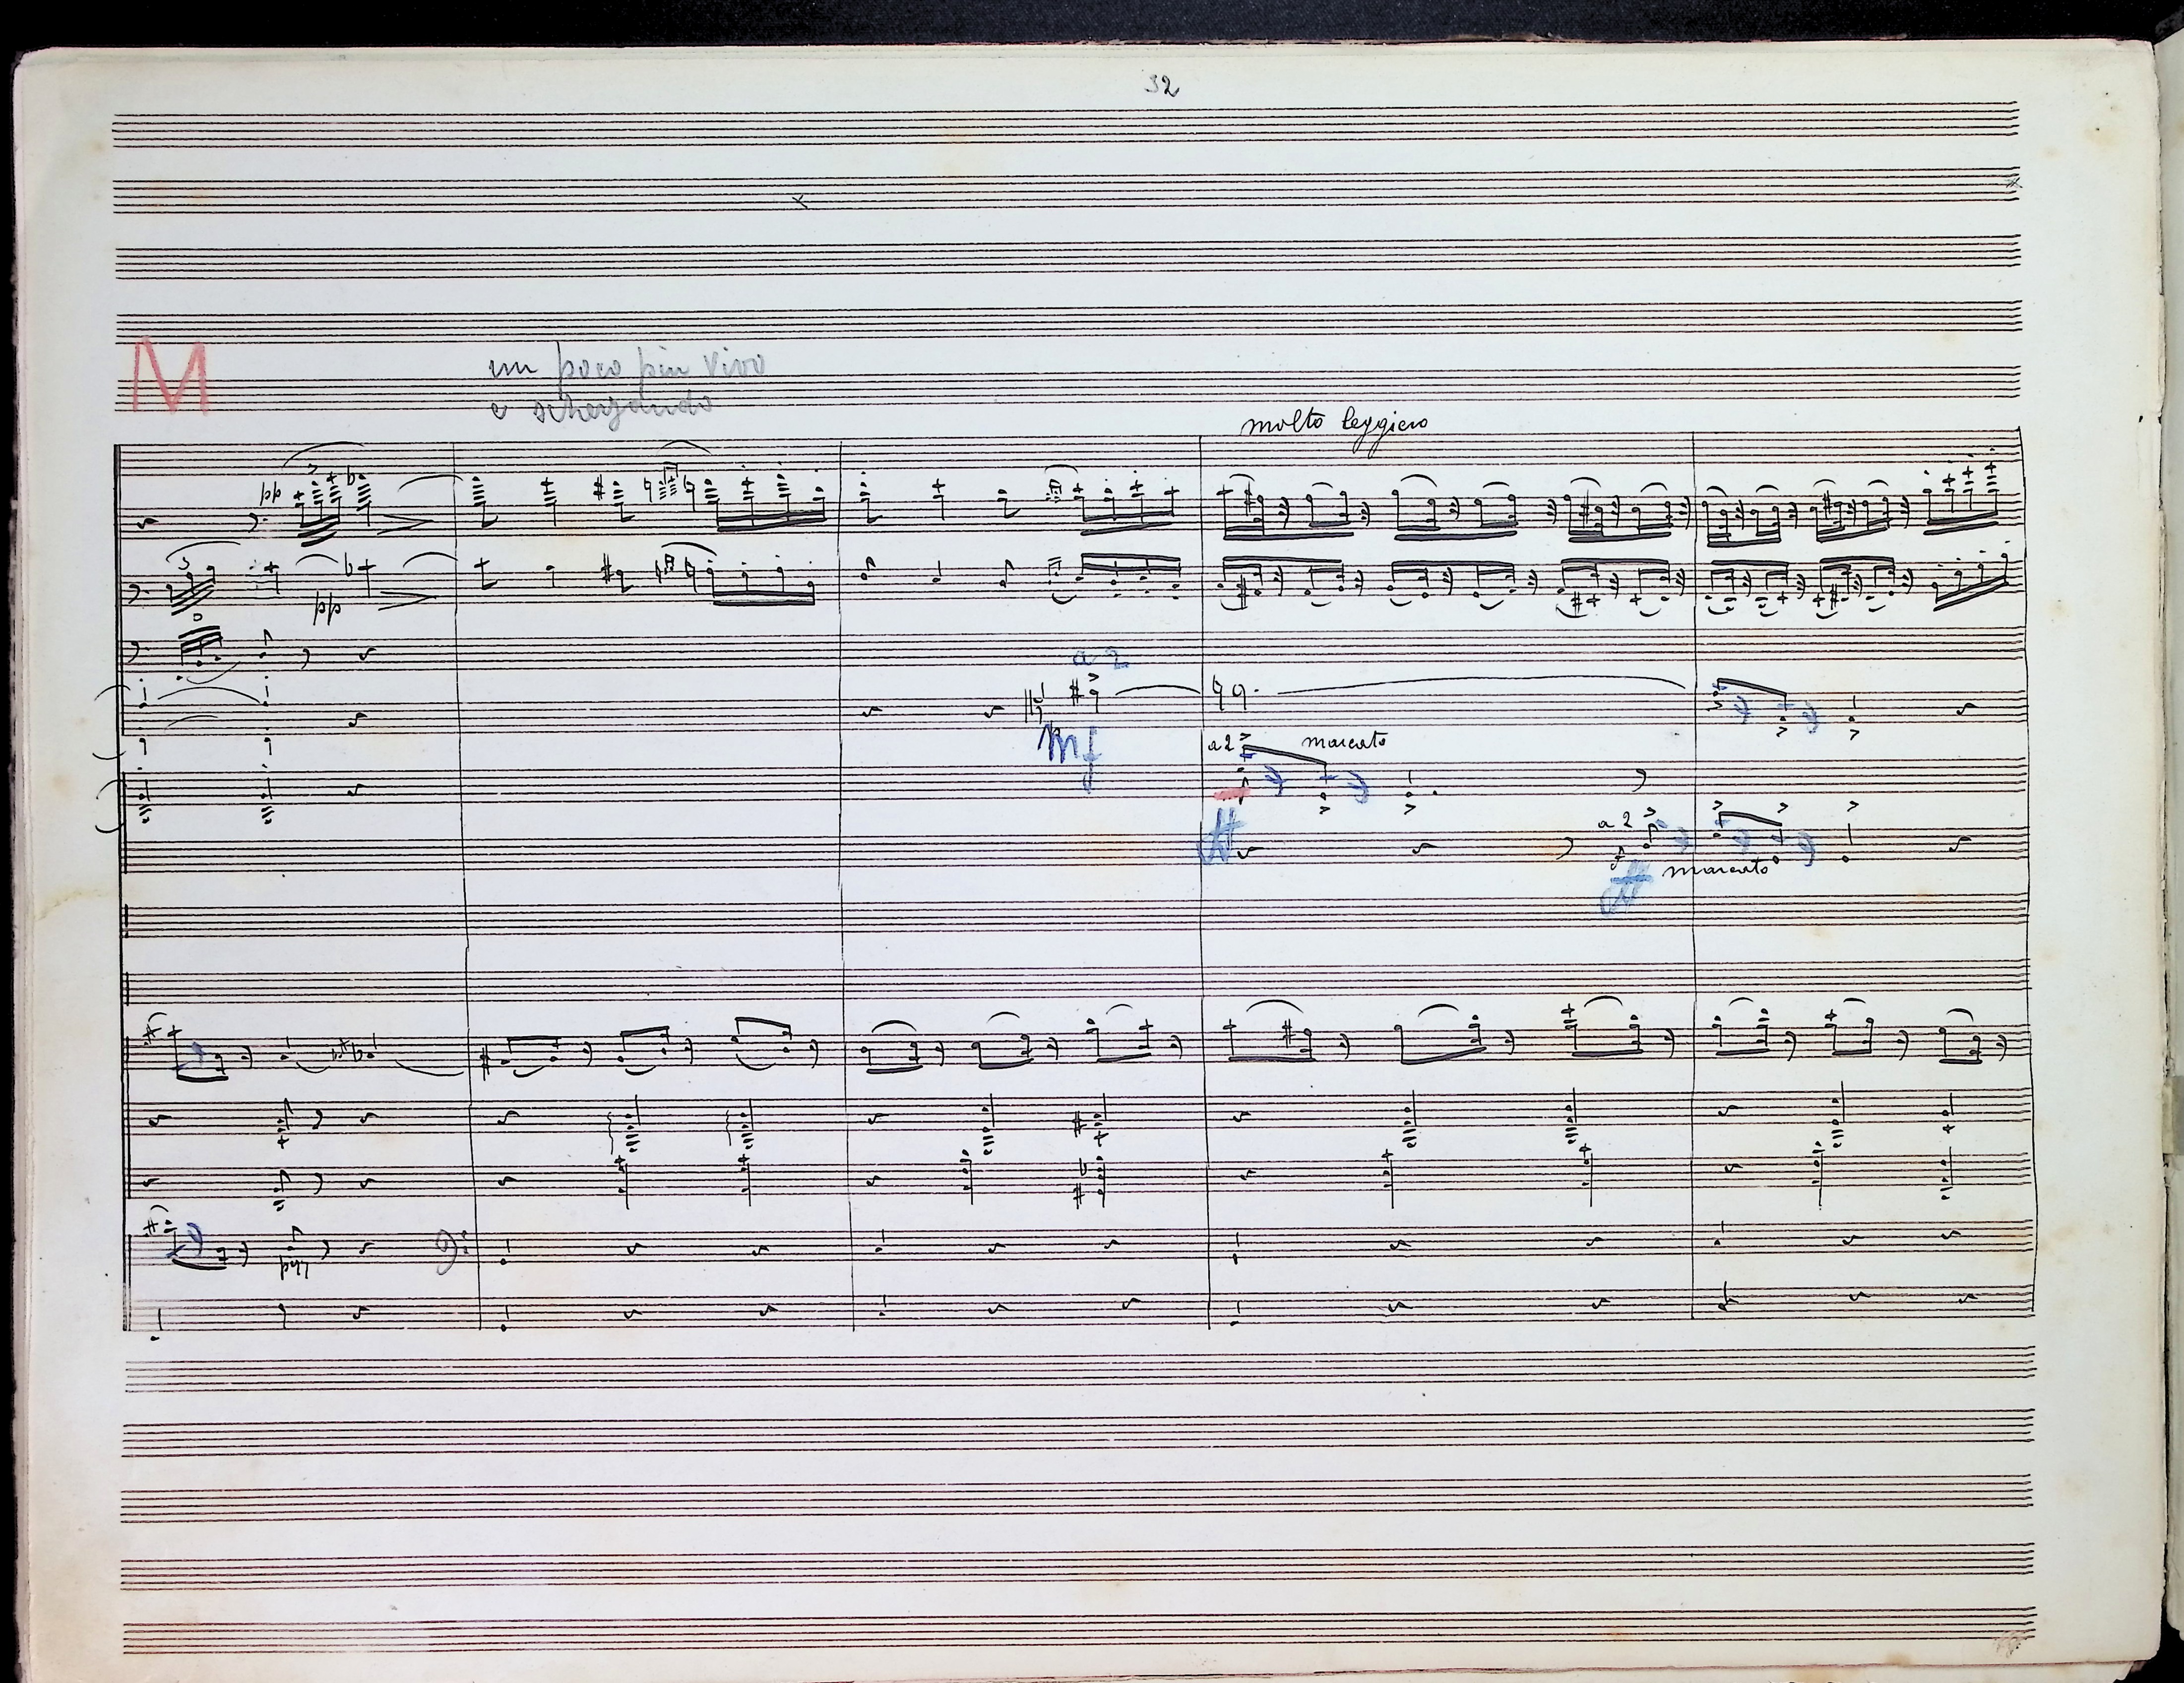 32
M
un poco più vivo
e scherzando
molto leggiero
pp
3
pp
a 2
mf
a 2
marcato
a 2
f
marcato